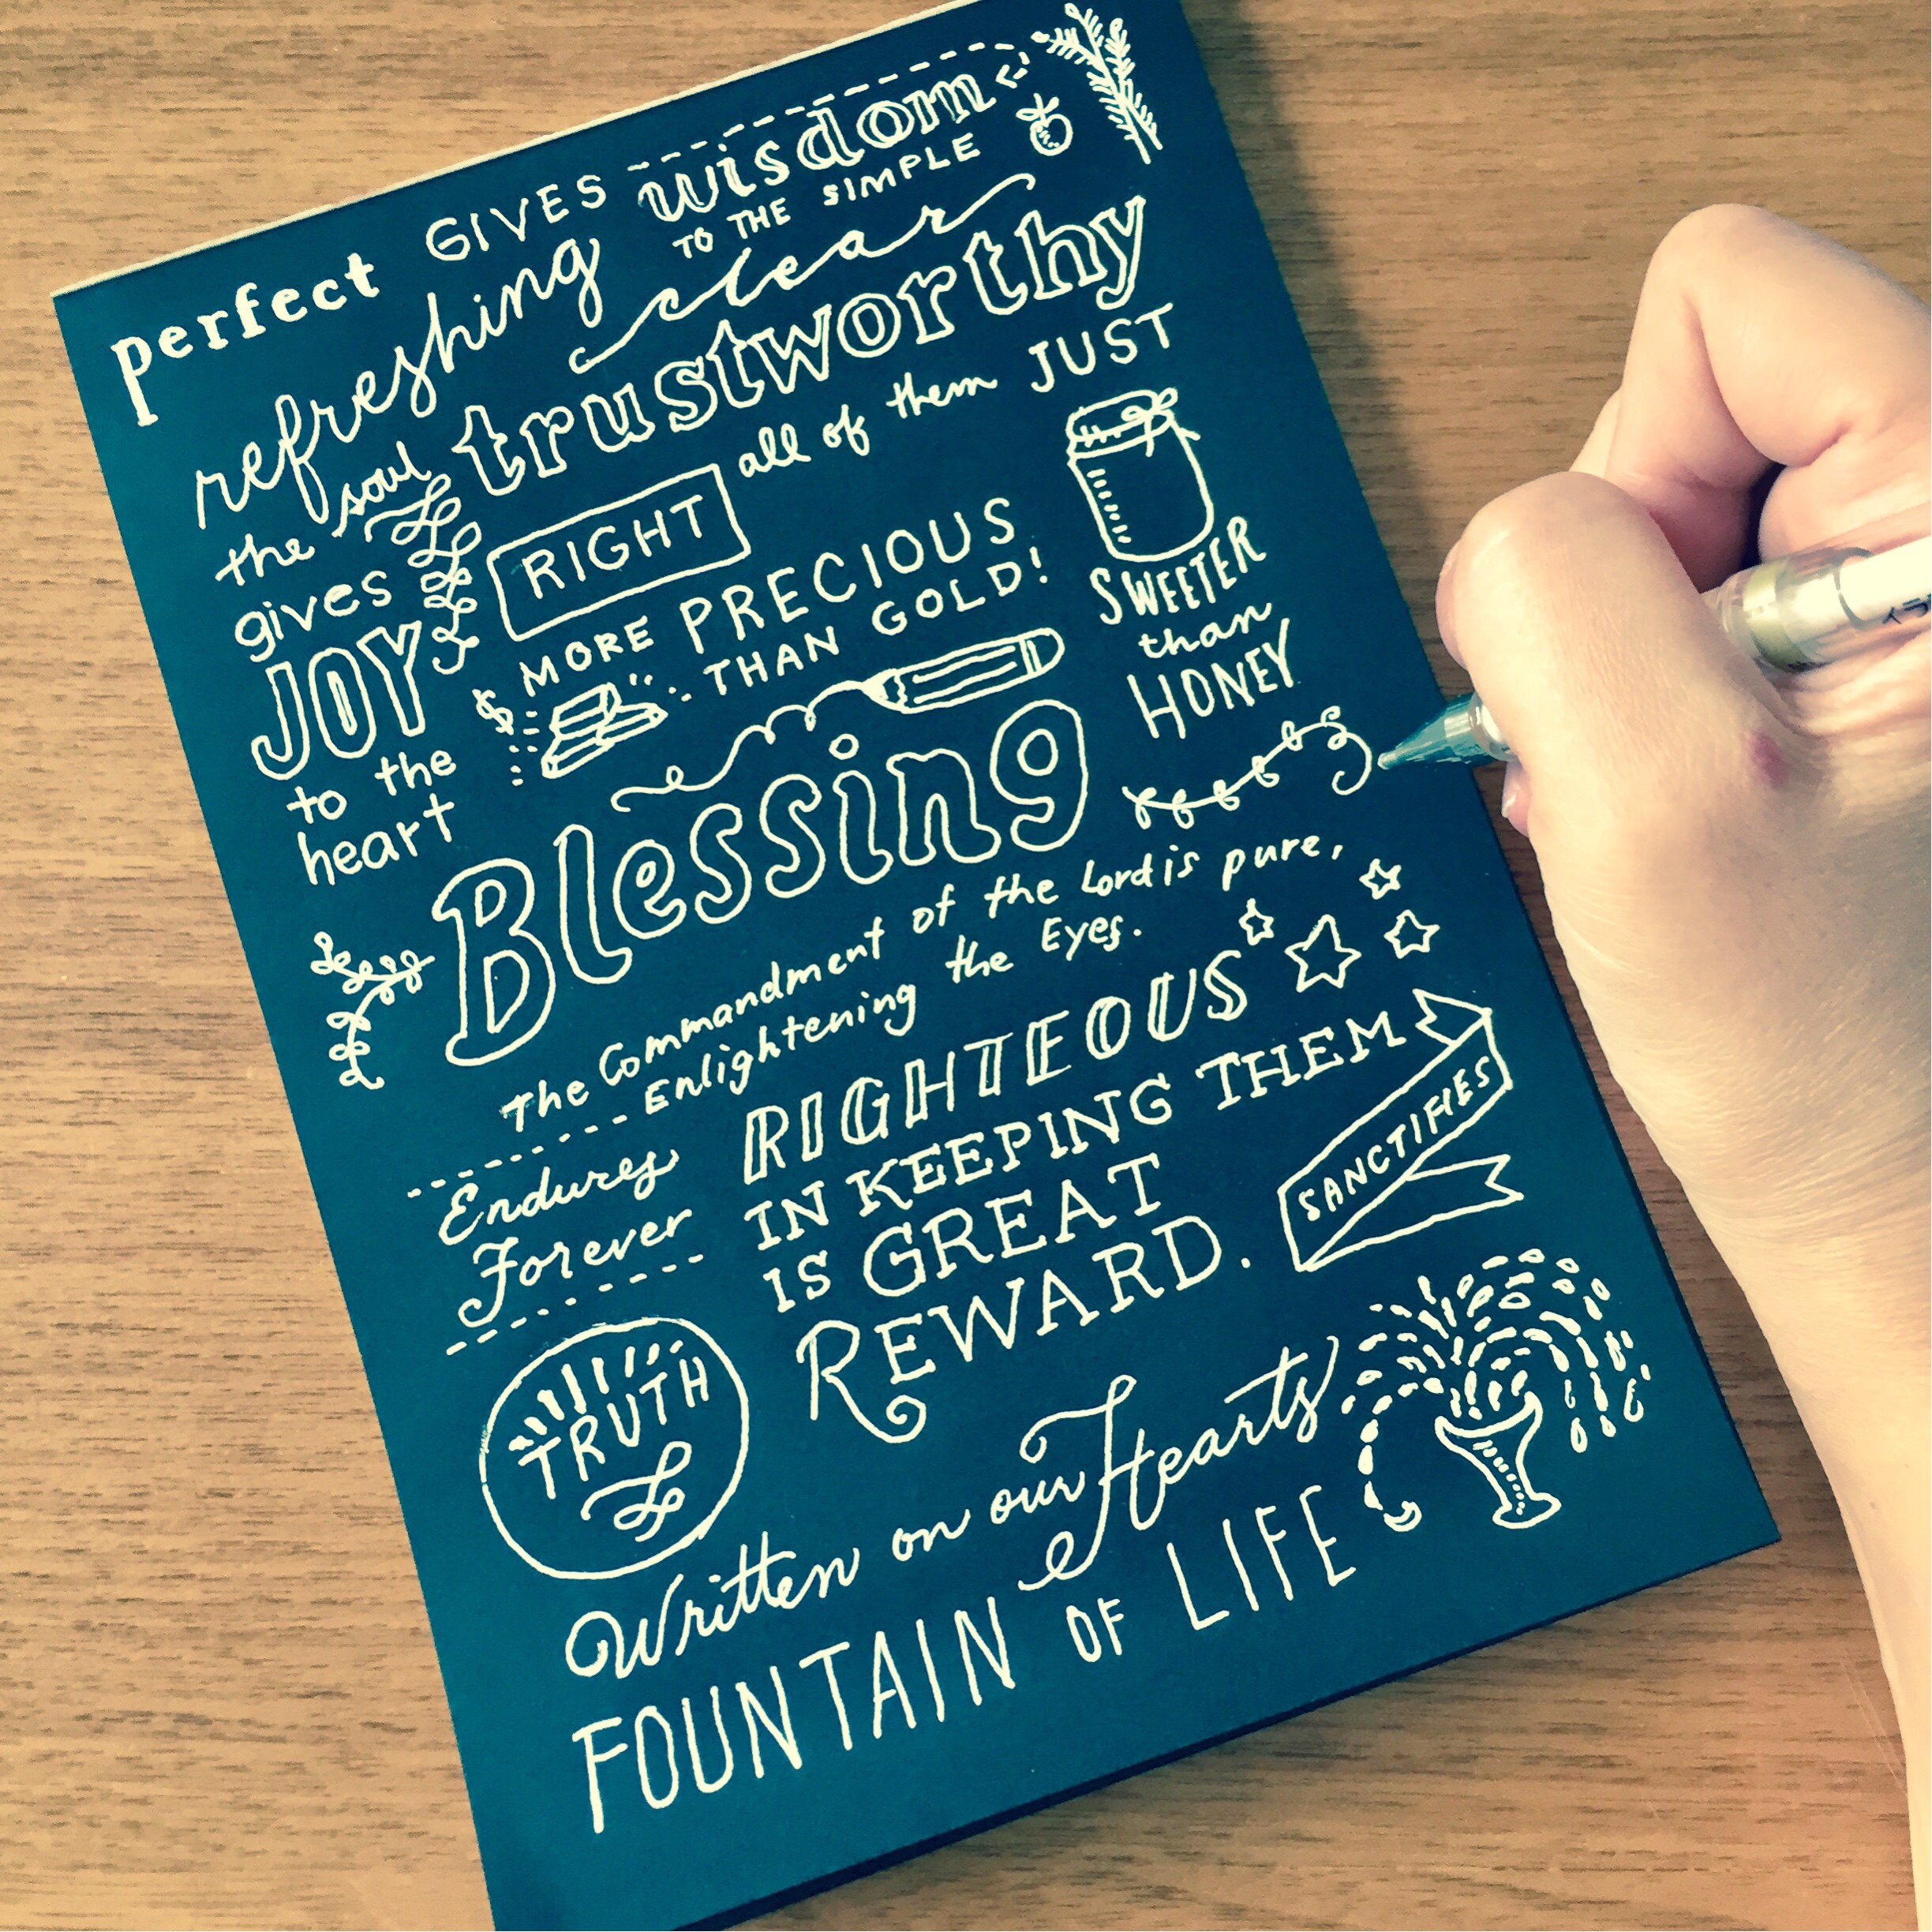 perfect GIVES wisdom
TO THE SIMPLE
refreshing
the soul
clear
trustworthy
gives
JOY
to the
heart
RIGHT all of them JUST
$ MORE PRECIOUS
THAN GOLD!
SWEETER
than
HONEY
Blessing
The Commandment of the Lord is pure,
Enlightening the Eyes.
Endures
Forever
RIGHTEOUS
IN KEEPING THEM
IS GREAT
REWARD.
SANCTIFIES
TRUTH
Written on our Hearts
FOUNTAIN OF LIFE